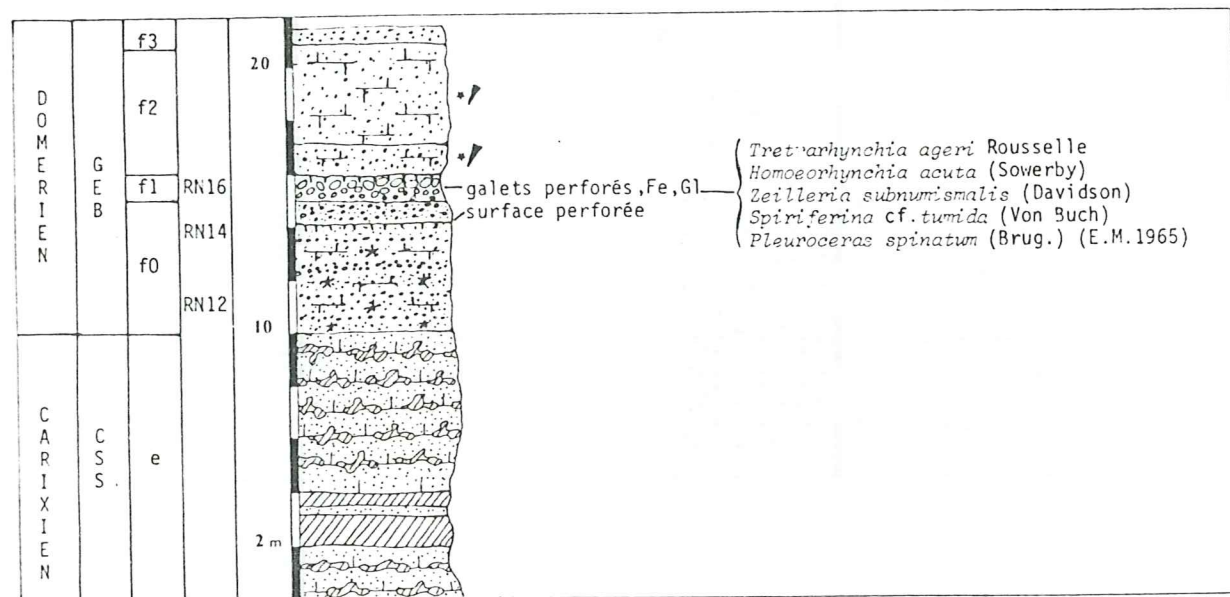 DOMERIEN
CARIXIEN
GEB
CSS
f3
f2
f1
f0
e
RN16
RN14
RN12
20
10
2 m
galets perforés,Fe,Gl
surface perforée
Tetrarhynchia ageri Rousselle
Homoeorhynchia acuta (Sowerby)
Zeilleria subnumismalis (Davidson)
Spiriferina cf. tumida (Von Buch)
Pleuroceras spinatum (Brug.) (E.M.1965)